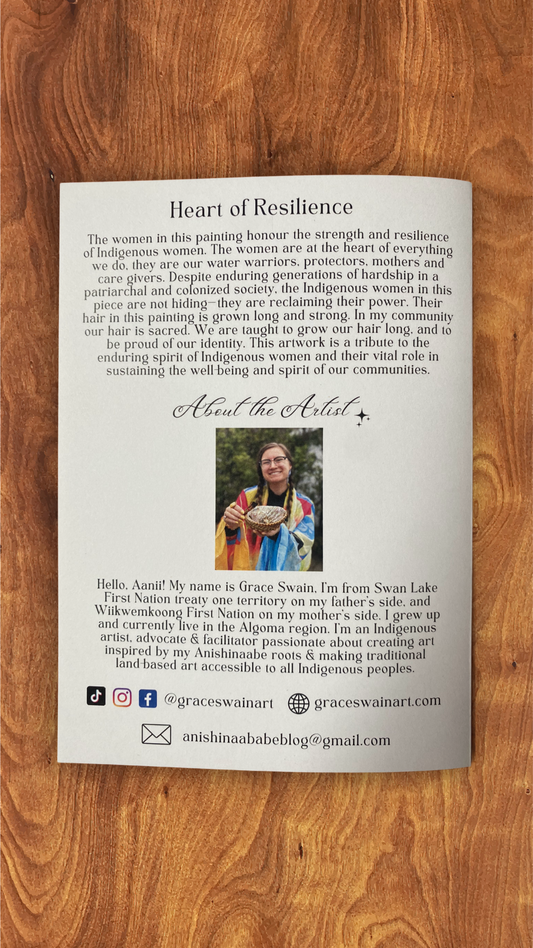 Heart of Resilience
The women in this painting honour the strength and resilience
of Indigenous women. The women are at the heart of everything
we do, they are our water warriors, protectors, mothers and
care givers. Despite enduring generations of hardship in a
patriarchal and colonized society, the Indigenous women in this
piece are not hiding—they are reclaiming their power. Their
hair in this painting is grown long and strong. In my community
our hair is sacred. We are taught to grow our hair long, and to
be proud of our identity. This artwork is a tribute to the
enduring spirit of Indigenous women and their vital role in
sustaining the well-being and spirit of our communities.
About the Artist
Hello, Aanii! My name is Grace Swain, I'm from Swan Lake
First Nation treaty one territory on my father's side, and
Wiikwemkoong First Nation on my mother's side. I grew up
and currently live in the Algoma region. I'm an Indigenous
artist, advocate & facilitator passionate about creating art
inspired by my Anishinaabe roots & making traditional
land-based art accessible to all Indigenous peoples.
@graceswainart graceswainart.com
anishinaababeblog@gmail.com